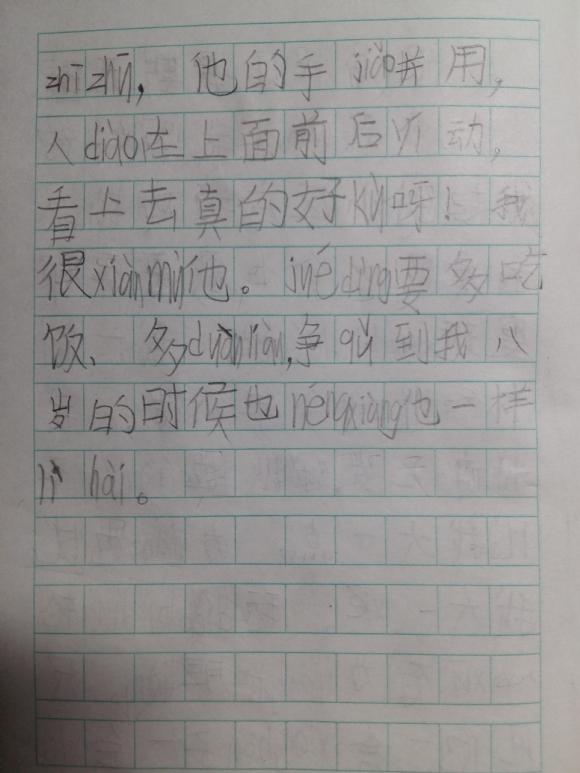 zhīzhū，他的手jiǎo并用，
人diào在上面前后yí动，
看上去真的好kù呀！我
很xiànmù他。juédìng要多吃
饭、多duànliàn,争qǔ到我八
岁的时候也néngxiàng他一样
lìhài。